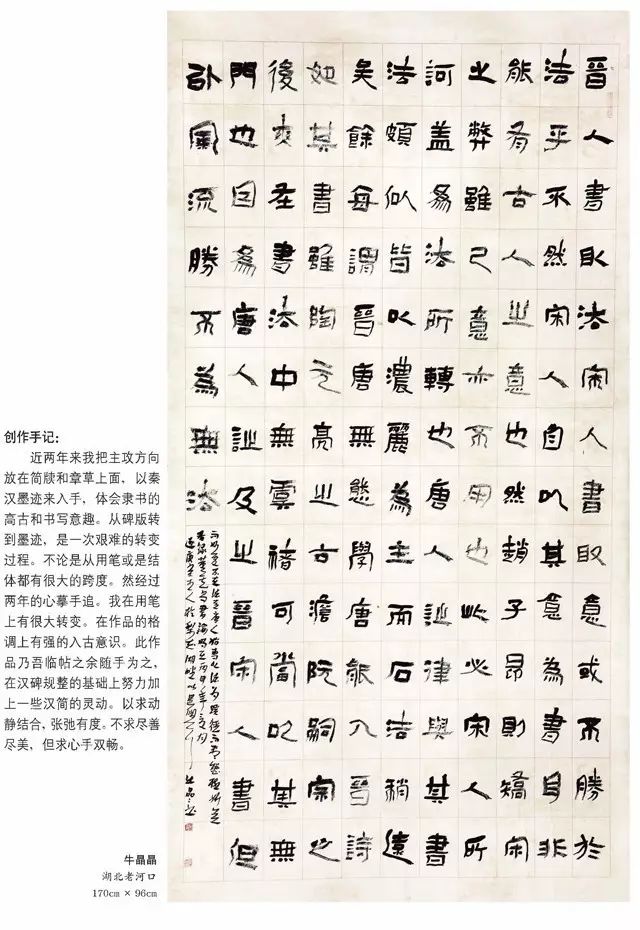 晉人書取法宋人書取意或不勝於
法乎不然宋人自以其意為書耳非
能有古人之意也然趙子昂則矯宋
之弊雖己意亦不用也此必宋人所
訶蓋為法所轉也唐人詩律與其書
法頗似皆以濃麗為主而古法稍遠
矣餘每謂晉唐無態學唐能入晉詩
如其書雖陶元亮之古澹阮嗣宗之
後爽在書法中無虞褚可當以其無
門也因為唐人詣及之晉宋人書但
以風流勝不為無法
创作手记:
近两年来我把主攻方向
放在简牍和章草上面,以秦
汉墨迹来入手,体会隶书的
高古和书写意趣。从碑版转
到墨迹,是一次艰难的转变
过程。不论是从用笔或是结
体都有很大的跨度。然经过
两年的心摹手追。我在用笔
上有很大转变。在作品的格
调上有强的入古意识。此作
品乃吾临帖之余随手为之,
在汉碑规整的基础上努力加
上一些汉简的灵动。以求动
静结合,张弛有度。不求尽善
尽美,但求心手双畅。
牛晶晶
湖北老河口
170cm × 96cm